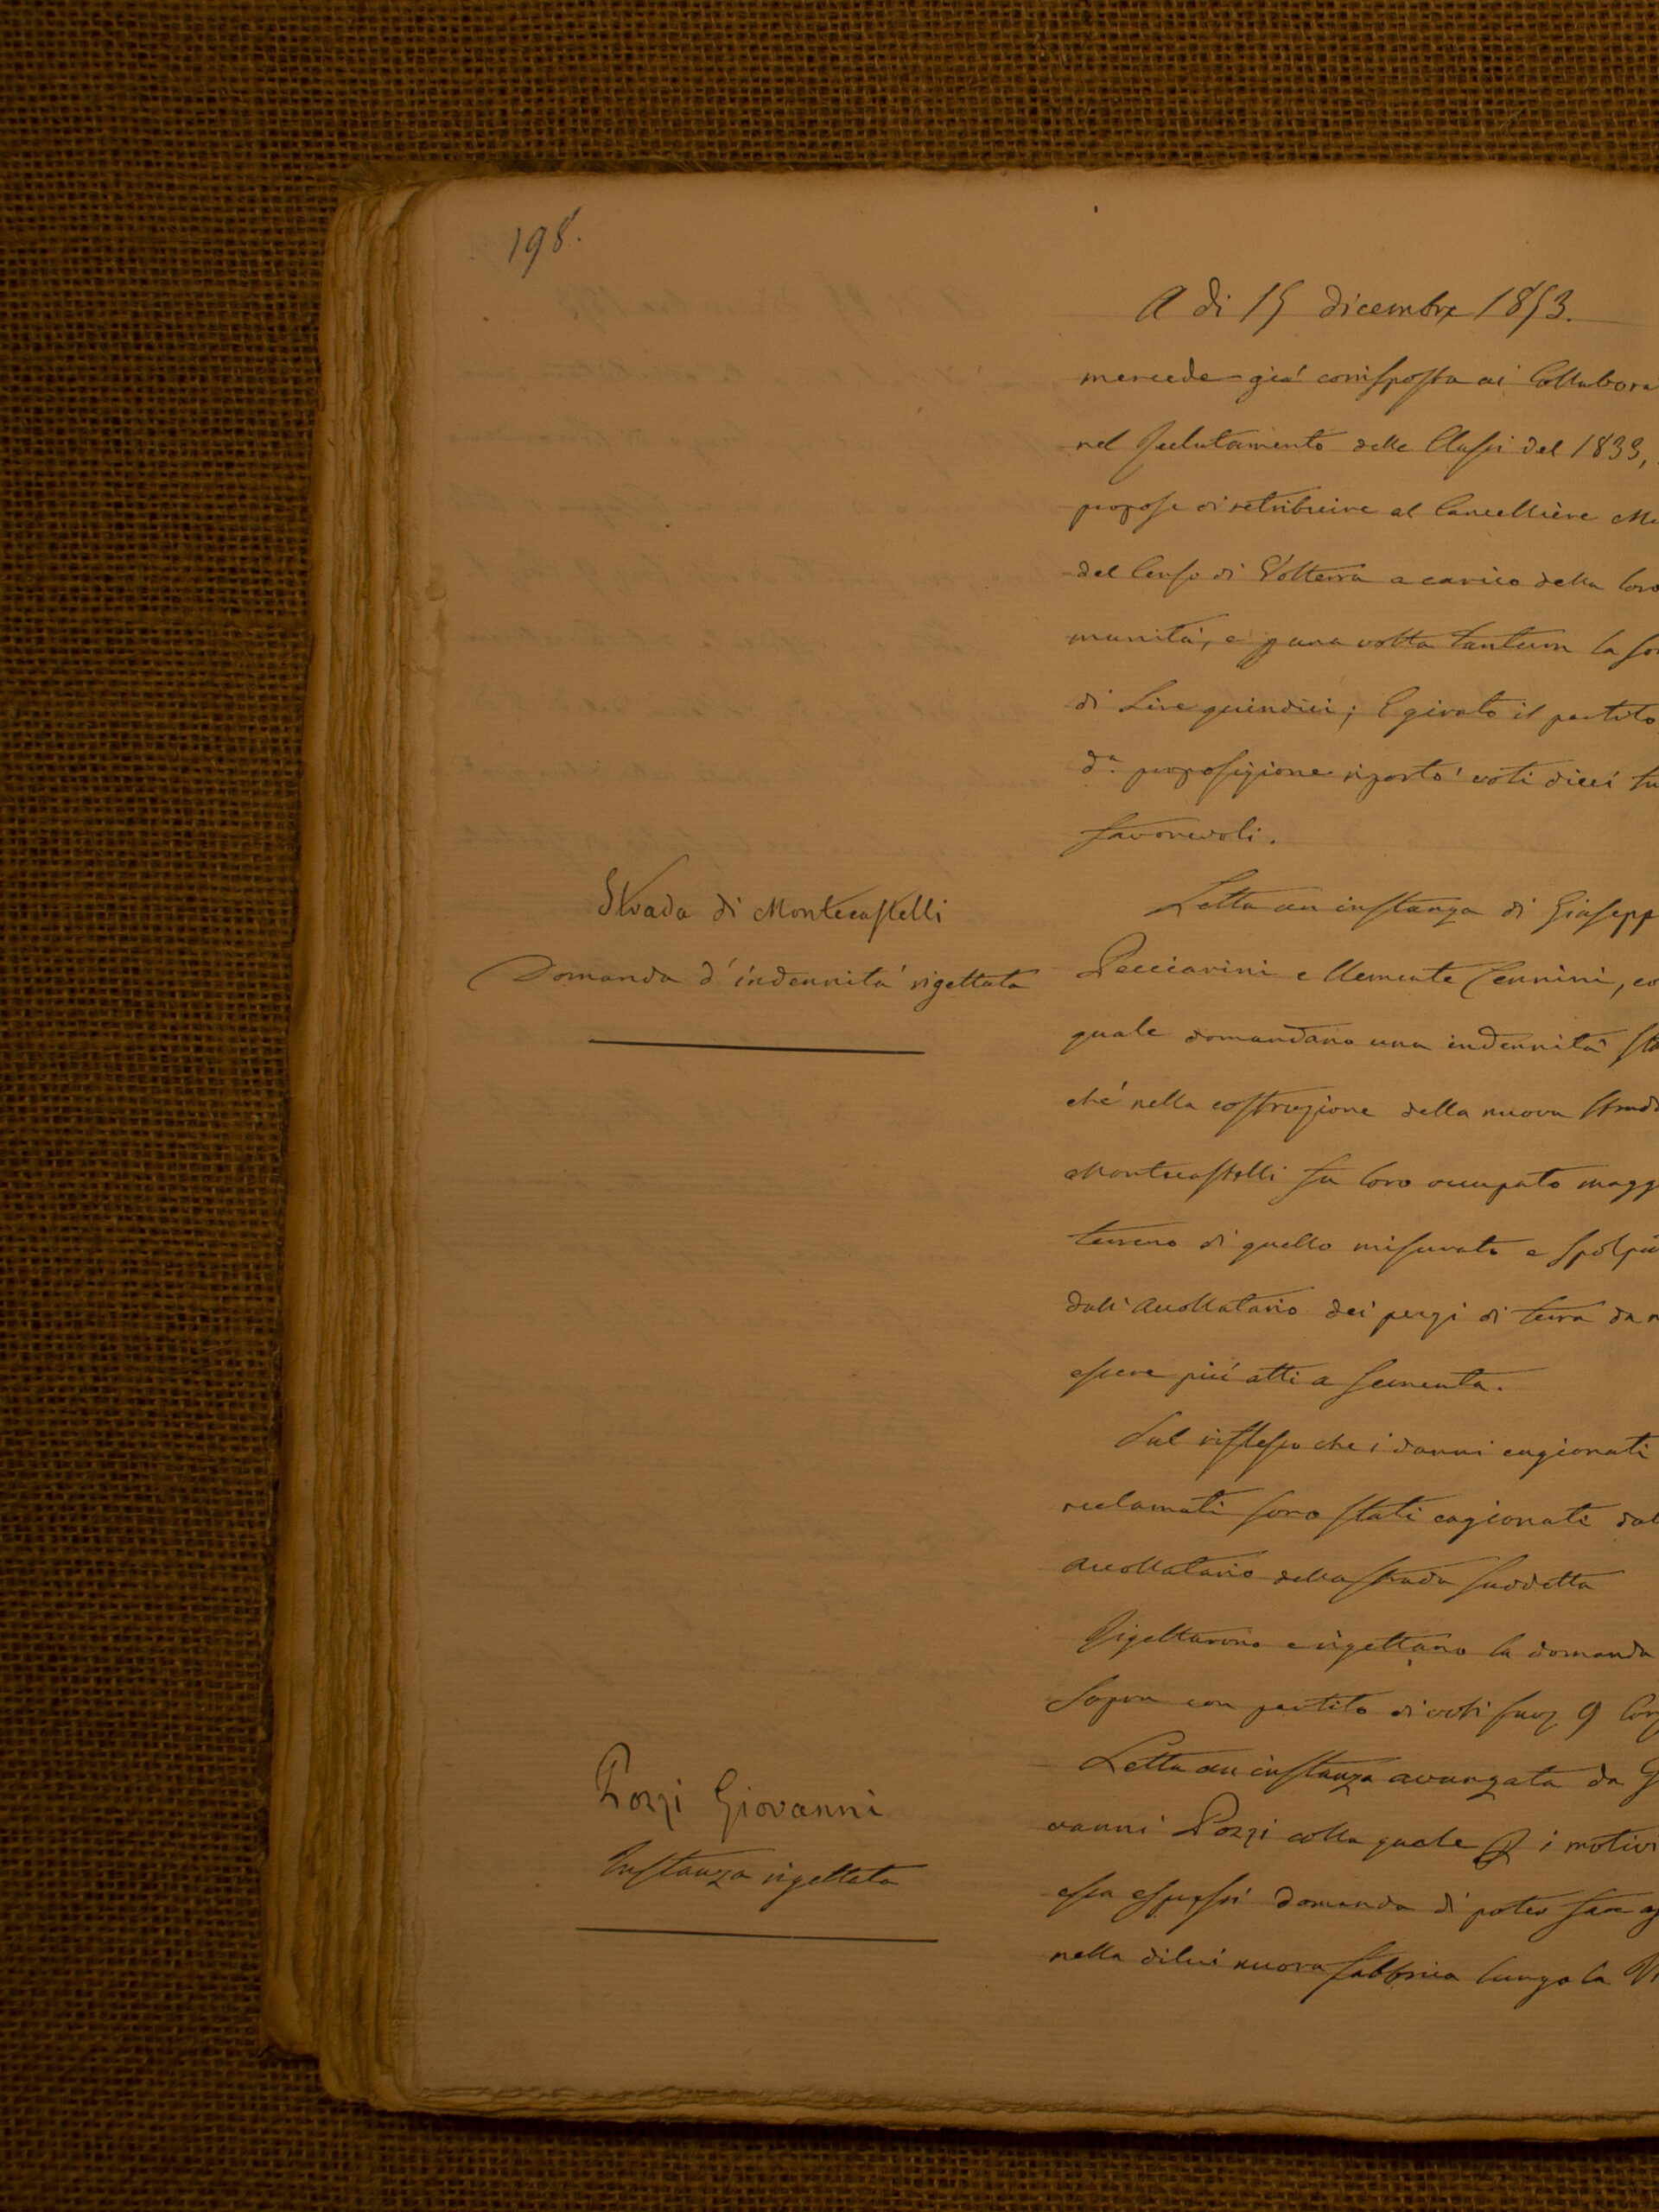 198.
A di 15 dicembre 1853.
mercede già corrisposta ai Collabora
nel Reclutamento delle Classi del 1833,
propose di retribuire al Cancelliere M
del Censo di Volterra a carico della loro
munità, e p una volta tantum la so
di Lire quindici; E girato il partito
da. proposizione riportò voti dieci tu
favorevoli.
Strada di Montecastelli
Domanda d'indennità rigettata
Letta un instanza di Giusepp
Pecciarini e Clemente Cennini, co
quale domandano una indennità sta
chè nella costruzione della nuova strad
Montecastelli fu loro occupato magg
terreno di quello misurato e
dall'Accollatario dei pezzi di terra da n
essere più atti a sementa.
Sul riflesso che i danni cagionati
reclamati sono stati cagionati dal
Accollatario della strada suddetta
Rigettarono e rigettano la domanda
sopra con partito di voti 9
Pozzi Giovanni
Instanza rigettata
Letta un instanza avanzata da G
ovanni Pozzi colla quale p i motivi
essa espressi domanda di poter fare
nella dilui nuova fabbrica lungo la